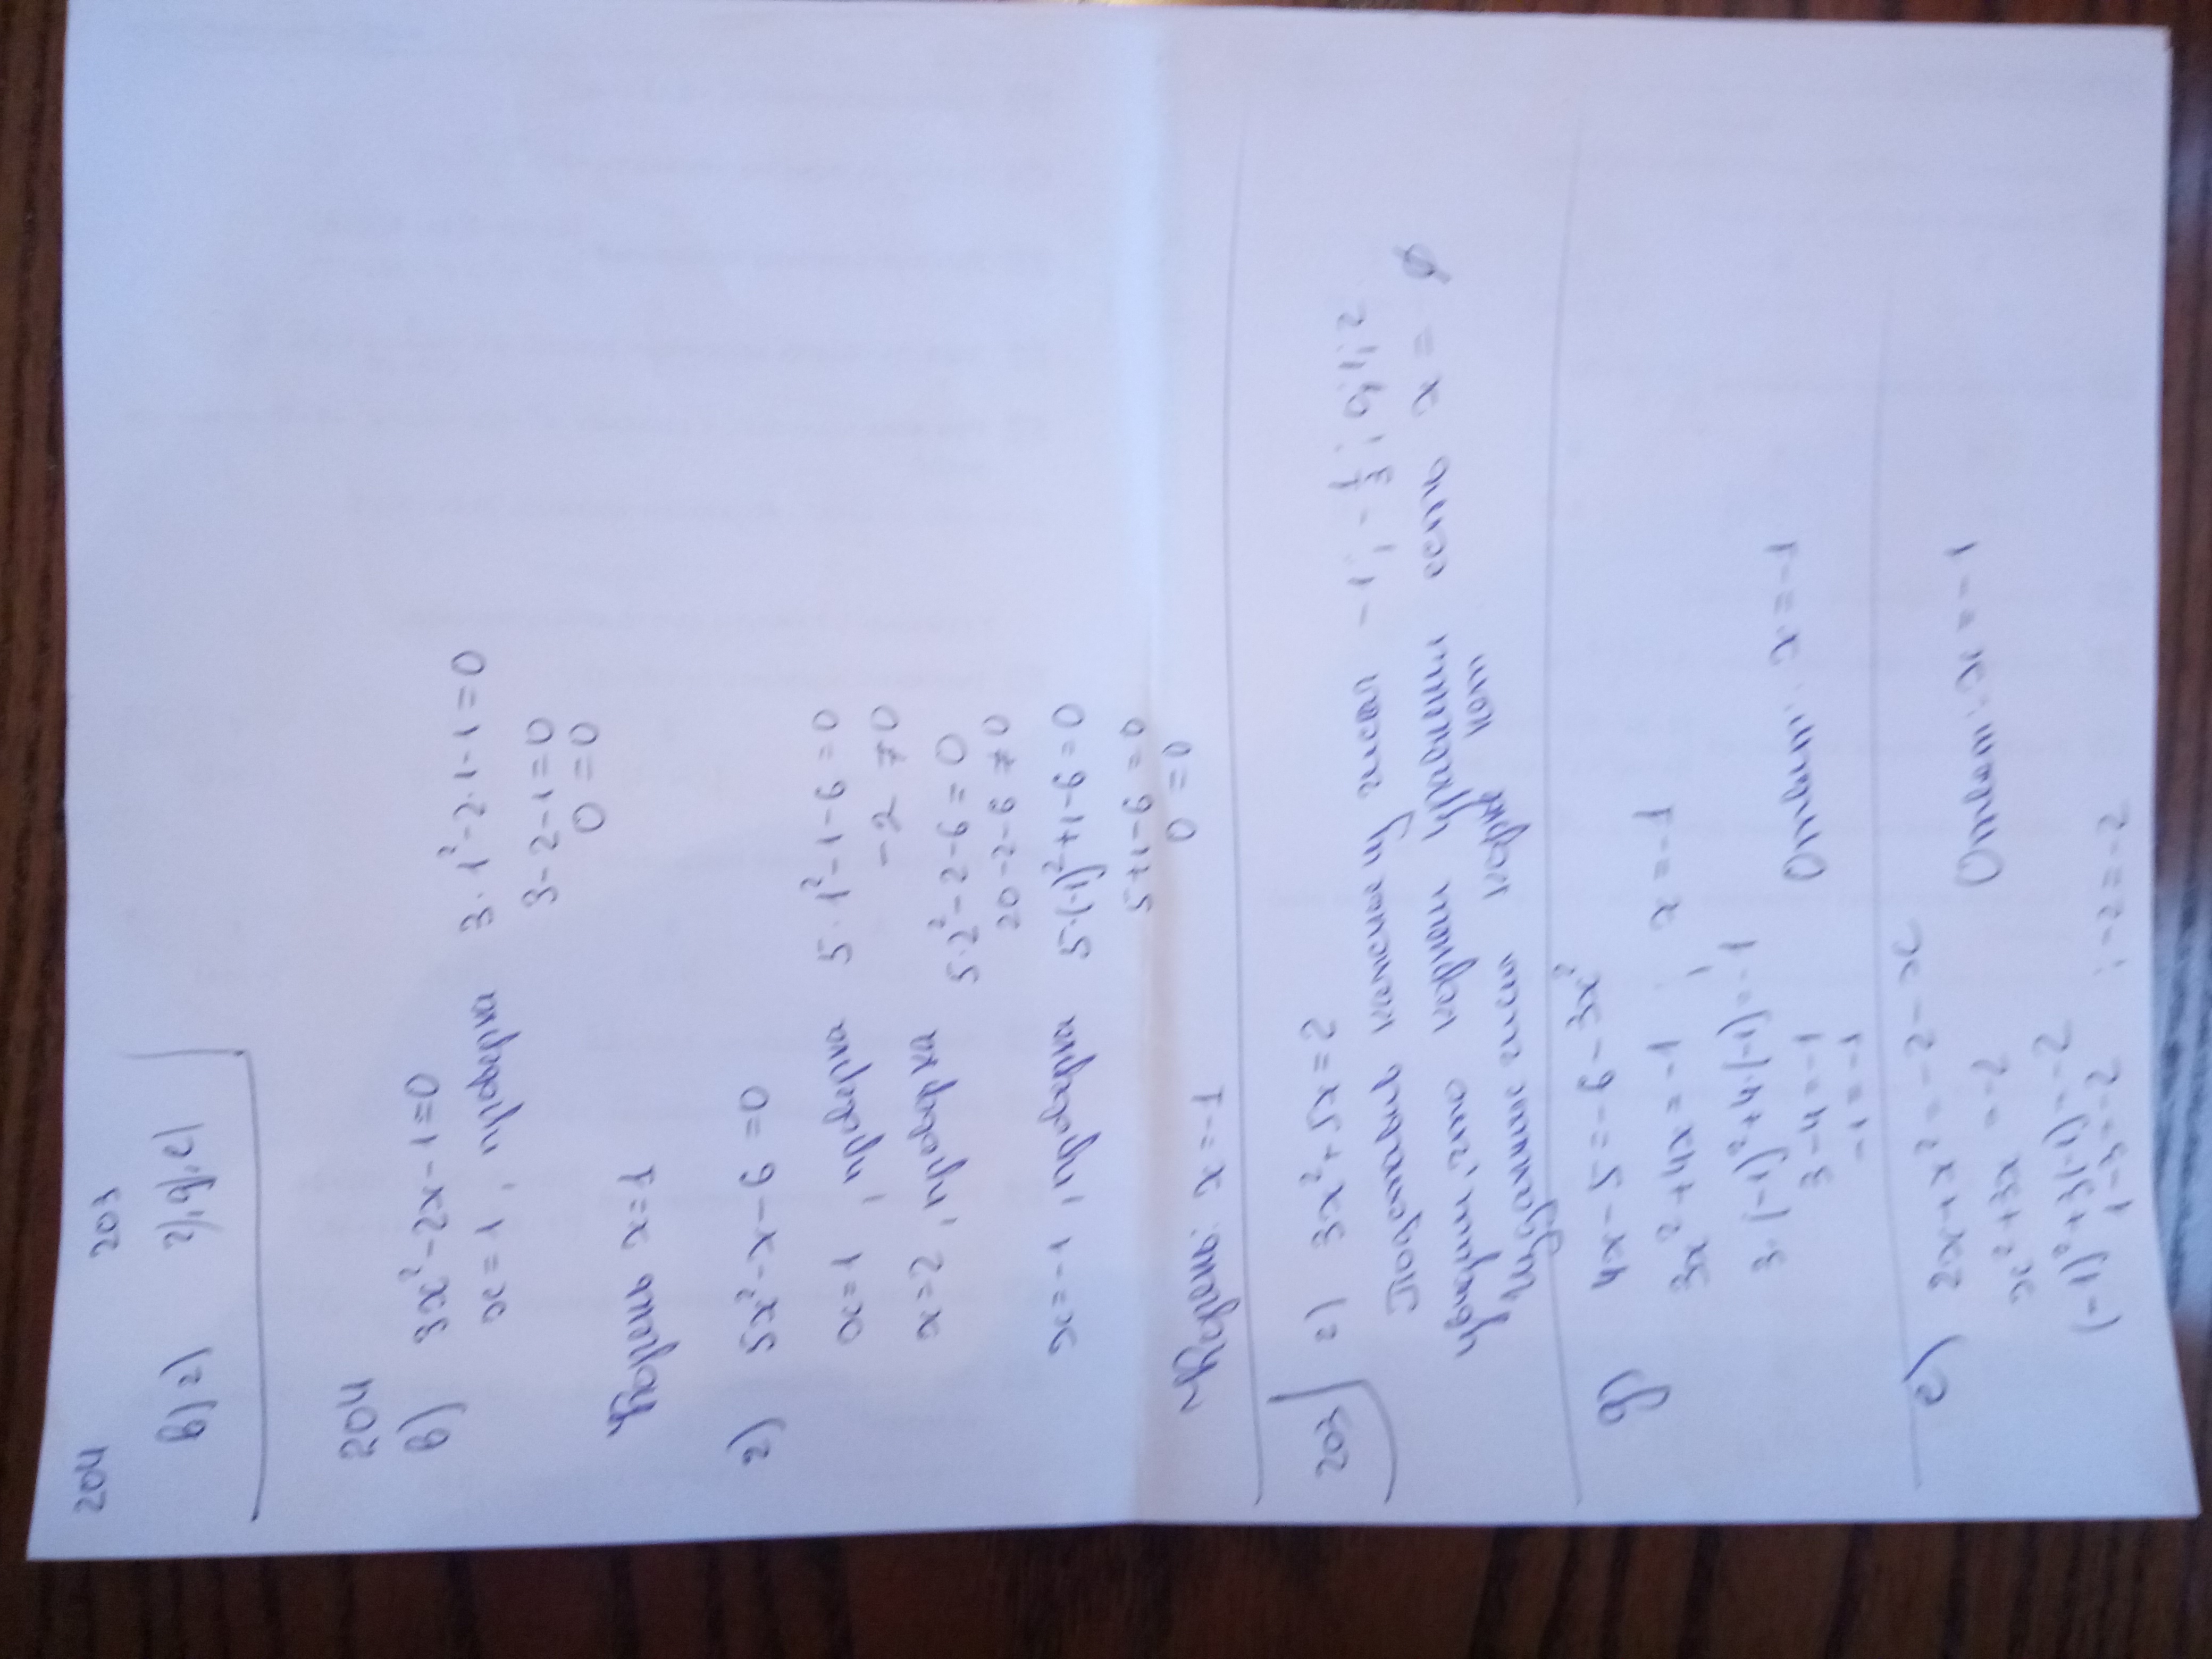 204 203
в) г) г), д), е)
204
в) 3x² - 2x - 1 = 0
x = 1, проверка 3·1² - 2·1 - 1 = 0
3 - 2 - 1 = 0
0 = 0
Корень x = 1
г) 5x² - x - 6 = 0
x = 1, проверка 5·1² - 1 - 6 = 0
-2 ≠ 0
x = 2, проверка 5·2² - 2 - 6 = 0
20 - 2 - 6 ≠ 0
x = -1, проверка 5·(-1)² + 1 - 6 = 0
5 + 1 - 6 = 0
0 = 0
Корень: x = -1
203 г) 3x² + 5x = 2
каждое из чисел -1; -1/3; 0; 1; 2
что корнем уравнения есть x = ∅
числа корня нет
д) 4x - 5 = -6 - 3x²
3x² + 4x = -1; x = -1
3·(-1)² + 4·(-1) = -1
3 - 4 = -1
-1 = -1
Ответ: x = -1
е) 2x + x² = -2 - x
x² + 3x = -2
Ответ: x = -1
(-1)² + 3(-1) = -2
1 - 3 = -2; -2 = -2